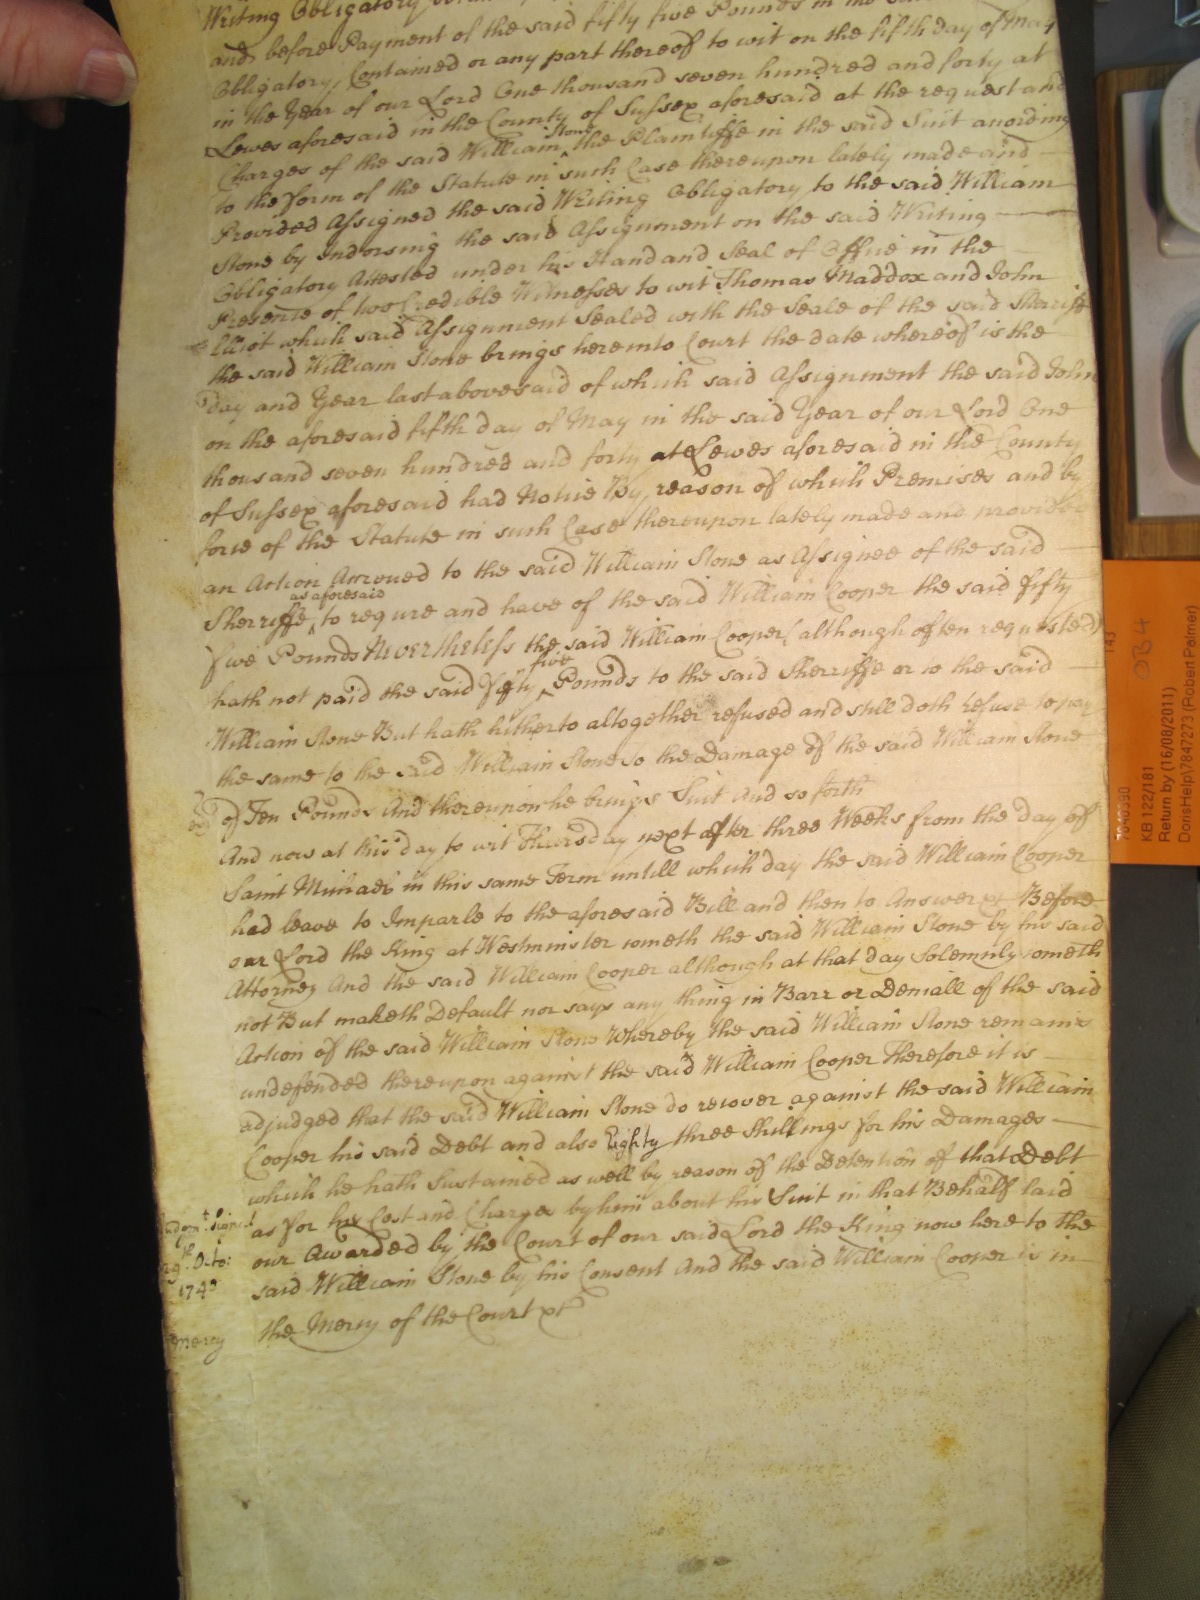 Writing Obligatory
and before Payment of the said fifty five Pounds in the
Obligatory Contained or any part thereof to wit on the fifth day of May
in the Year of our Lord One thousand seven hundred and forty at
Lewes aforesaid in the County of Sussex aforesaid at the request and
Charges of the said William Stone the Plaintiffe in the said Suit according
to the form of the Statute in such Case thereupon lately made and
Provided Assigned the said Writing Obligatory to the said William
Stone by indorsing the said Assignment on the said Writing
Obligatory Attested under his Hand and Seal of Office in the
Presence of two Credible Witnesses to wit Thomas Maddox and John
Elliot which said Assignment Sealed with the Seale of the said Sherriffe
the said William Stone brings here into Court the date whereof is the
day and Year last abovesaid of which said Assignment the said John
on the aforesaid fifth day of May in the said Year of our Lord One
thousand seven hundred and forty at Lewes aforesaid in the County
of Sussex aforesaid had Notice By reason of which Premises and by
force of the Statute in such Case thereupon lately made and provided
an Action Accrued to the said William Stone as Assignee of the said
Sherriffe as aforesaid to requre and have of the said William Cooper the said fifty
five Pounds Nevertheless the said William Cooper (although often requested)
hath not paid the said fifty five Pounds to the said Sherriffe or to the said
William Stone But hath hitherto altogether refused and still doth refuse to pay
the same to the said William Stone to the Damage of the said William Stone
of Ten Pounds And thereupon he brings Suit And so forth
And now at this day to wit Thursday next after three Weeks from the day of
Saint Michael in this same Term untill which day the said William Cooper
had leave to Imparle to the aforesaid Bill and then to Answer &c Before
our Lord the King at Westminster cometh the said William Stone by his said
Attorney And the said William Cooper although at that day Solemnly cometh
not But maketh Default nor says any thing in Barr or Deniall of the said
Action of the said William Stone Whereby the said William Stone remains
undefended thereupon against the said William Cooper Therefore it is
adjudged that the said William Stone do recover against the said William
Cooper his said Debt and also Eighty three Shillings for his Damages
which he hath Sustained as well by reason of the Detention of that Debt
as for his Cost and Charges by him about his Suit in that Behalf laid
Judgmt. Signed
29th. Octo:
1743
our Awarded by the Court of our said Lord the King now here to the
said William Stone by his Consent And the said William Cooper is in
Mercy
the Mercy of the Court &c
143
OB4
7640390
KB 122/181
Return by (16/08/2011)
DorisHelp\7847273 (Robert Palmer)